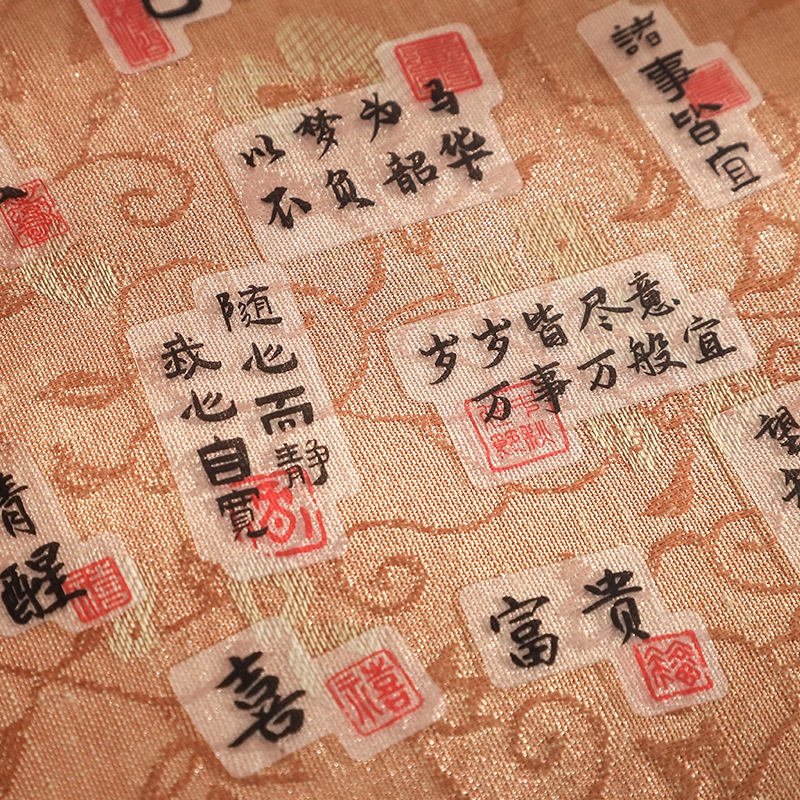 以梦为马
不负韶华
諸事皆宜
随心而静
我心自寬
岁岁皆尽意
万事万般宜
望
清
醒
富贵
福
喜
禧